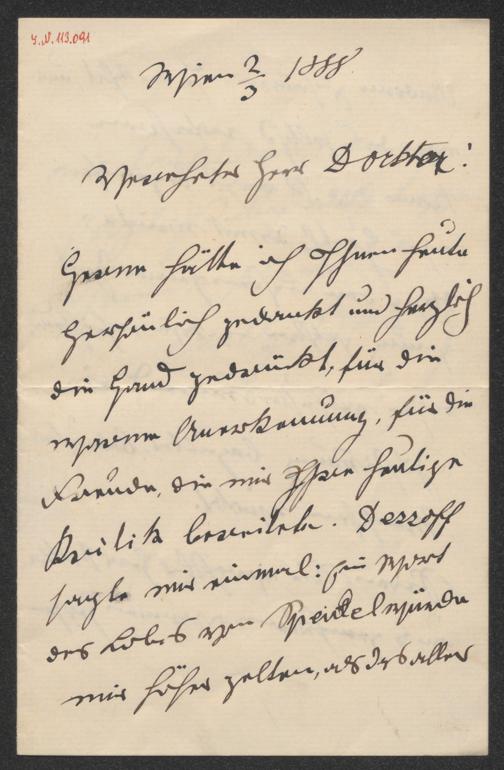 I.N. 113.091
Wien 2/3 1888.
Verehrter Herr Docktor!
Gerne hätte ich Ihnen heute
persönlich gedankt und herzlich
die Hand gedrückt, für die
warme Anerkennung, für die
Freude, die mir Ihre heutige
Kritik bereitete. Dessoff
sagte mir einmal: Ein Wort
des Lobes von Speidel würde
mir höher gelten, als das aller